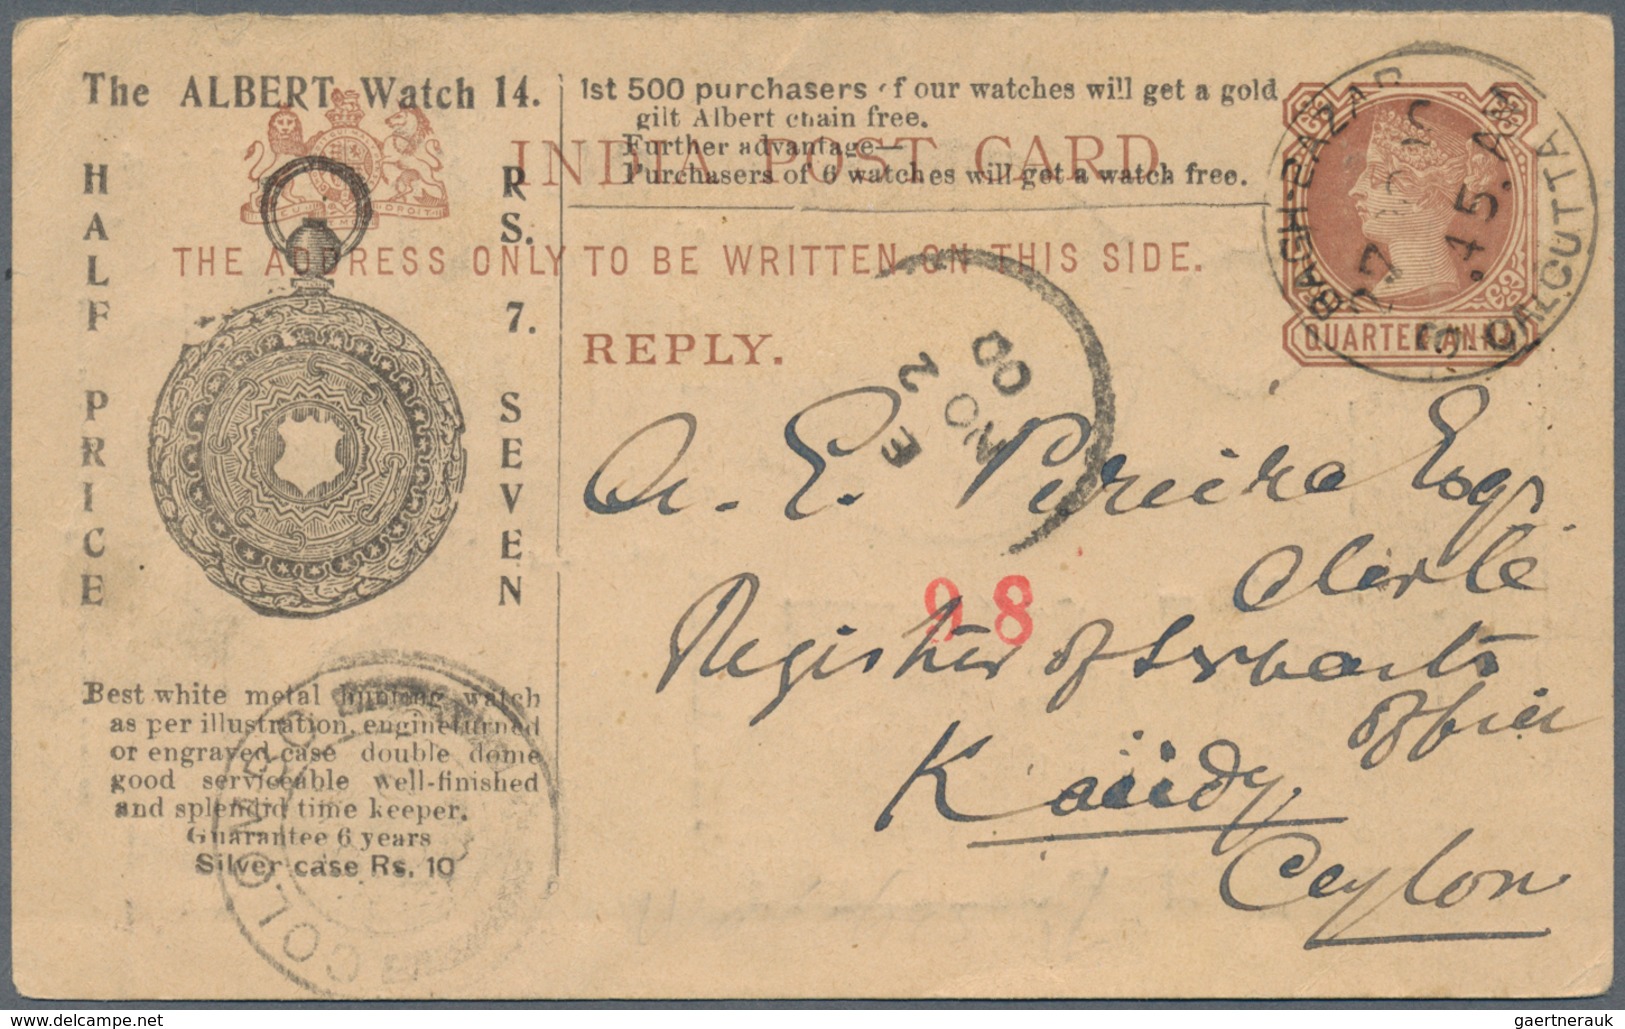 The ALBERT Watch 14.
HALF PRICE
RS. 7. SEVEN
1st 500 purchasers of our watches will get a gold
gilt Albert chain free.
Further advantage—
Purchasers of 6 watches will get a watch free.
INDIA POST CARD
THE ADDRESS ONLY TO BE WRITTEN ON THIS SIDE.
REPLY.
QUARTER ANNA
BAGH-BAZAR
CALCUTTA
.45. AM
E
2
NO
00
A. E. Pereira Esqr
Clerk
98
Register of Servants
Office
Kandy
Ceylon
Best white metal hunting watch
as per illustration, engine turned
or engraved case double dome
good serviceable well-finished
and splendid time keeper.
Guarantee 6 years
Silver case Rs. 10
COLOMBO
gaertnerauk / www.delcampe.net